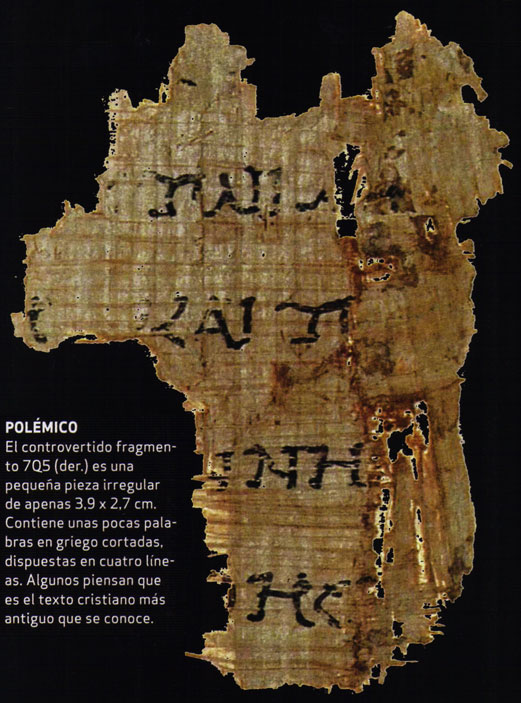 ΤΩΙ
ΚΑΙ Τ
ΝΗ
ΗΕ
POLÉMICO
El controvertido fragmen-
to 7Q5 (der.) es una
pequeña pieza irregular
de apenas 3,9 x 2,7 cm.
Contiene unas pocas pala-
bras en griego cortadas,
dispuestas en cuatro líne-
as. Algunos piensan que
es el texto cristiano más
antiguo que se conoce.